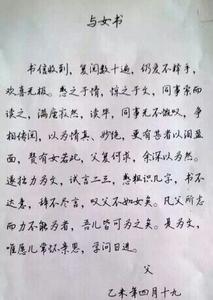 与女书
书信收到，复阅数十遍，仍爱不释手，
欢喜无极。感之于情，惊之于文，同事索而
读之，满座寂然，读毕，同事无不慨叹，争
相传阅，以为情真、妙绝，更有甚者以泪盈
面，赞有女若此，父复何求，余深以为然。
遂拙力为文，试言二三，愁粗识几字，书不
达意，辞不尽言，叹父不如女矣。凡父所志
而力不能为者，吾儿皆可为之矣。是为文，
唯愿儿常怀亲恩，学问日进。
父
乙未年四月十九